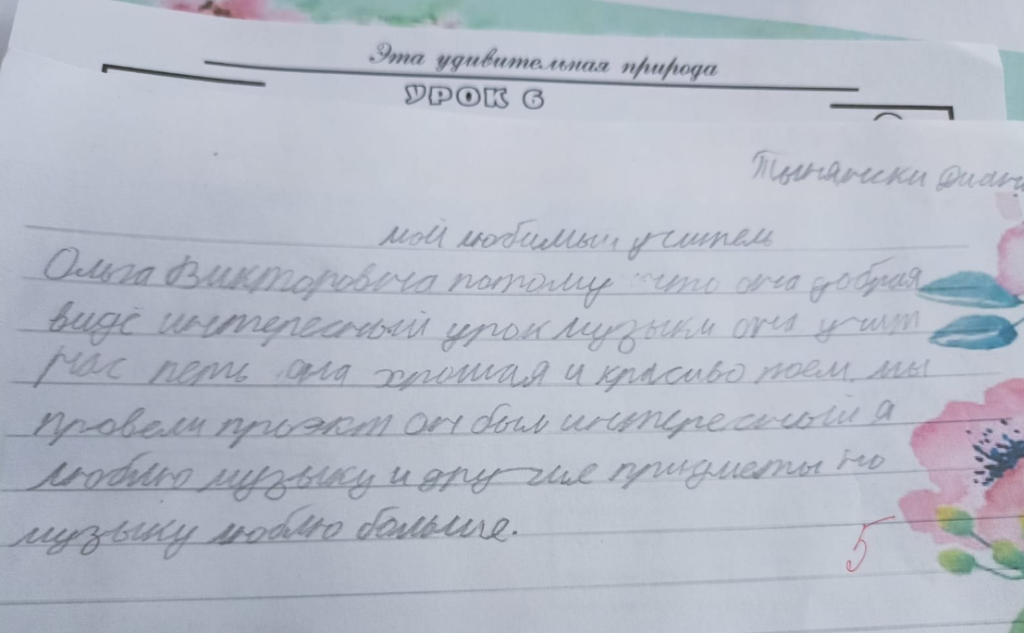 Эта удивительная природа
УРОК 6
Тынянски Диана
мой любимый учитель
Ольга Викторовна потому что она добрая
видё интересный урок музыки она учит
нас петь она хрошая и красиво поем мы
провели проэкт он был интересный я
люблю музыку и другие придметы но
музыку люблю больше.
5